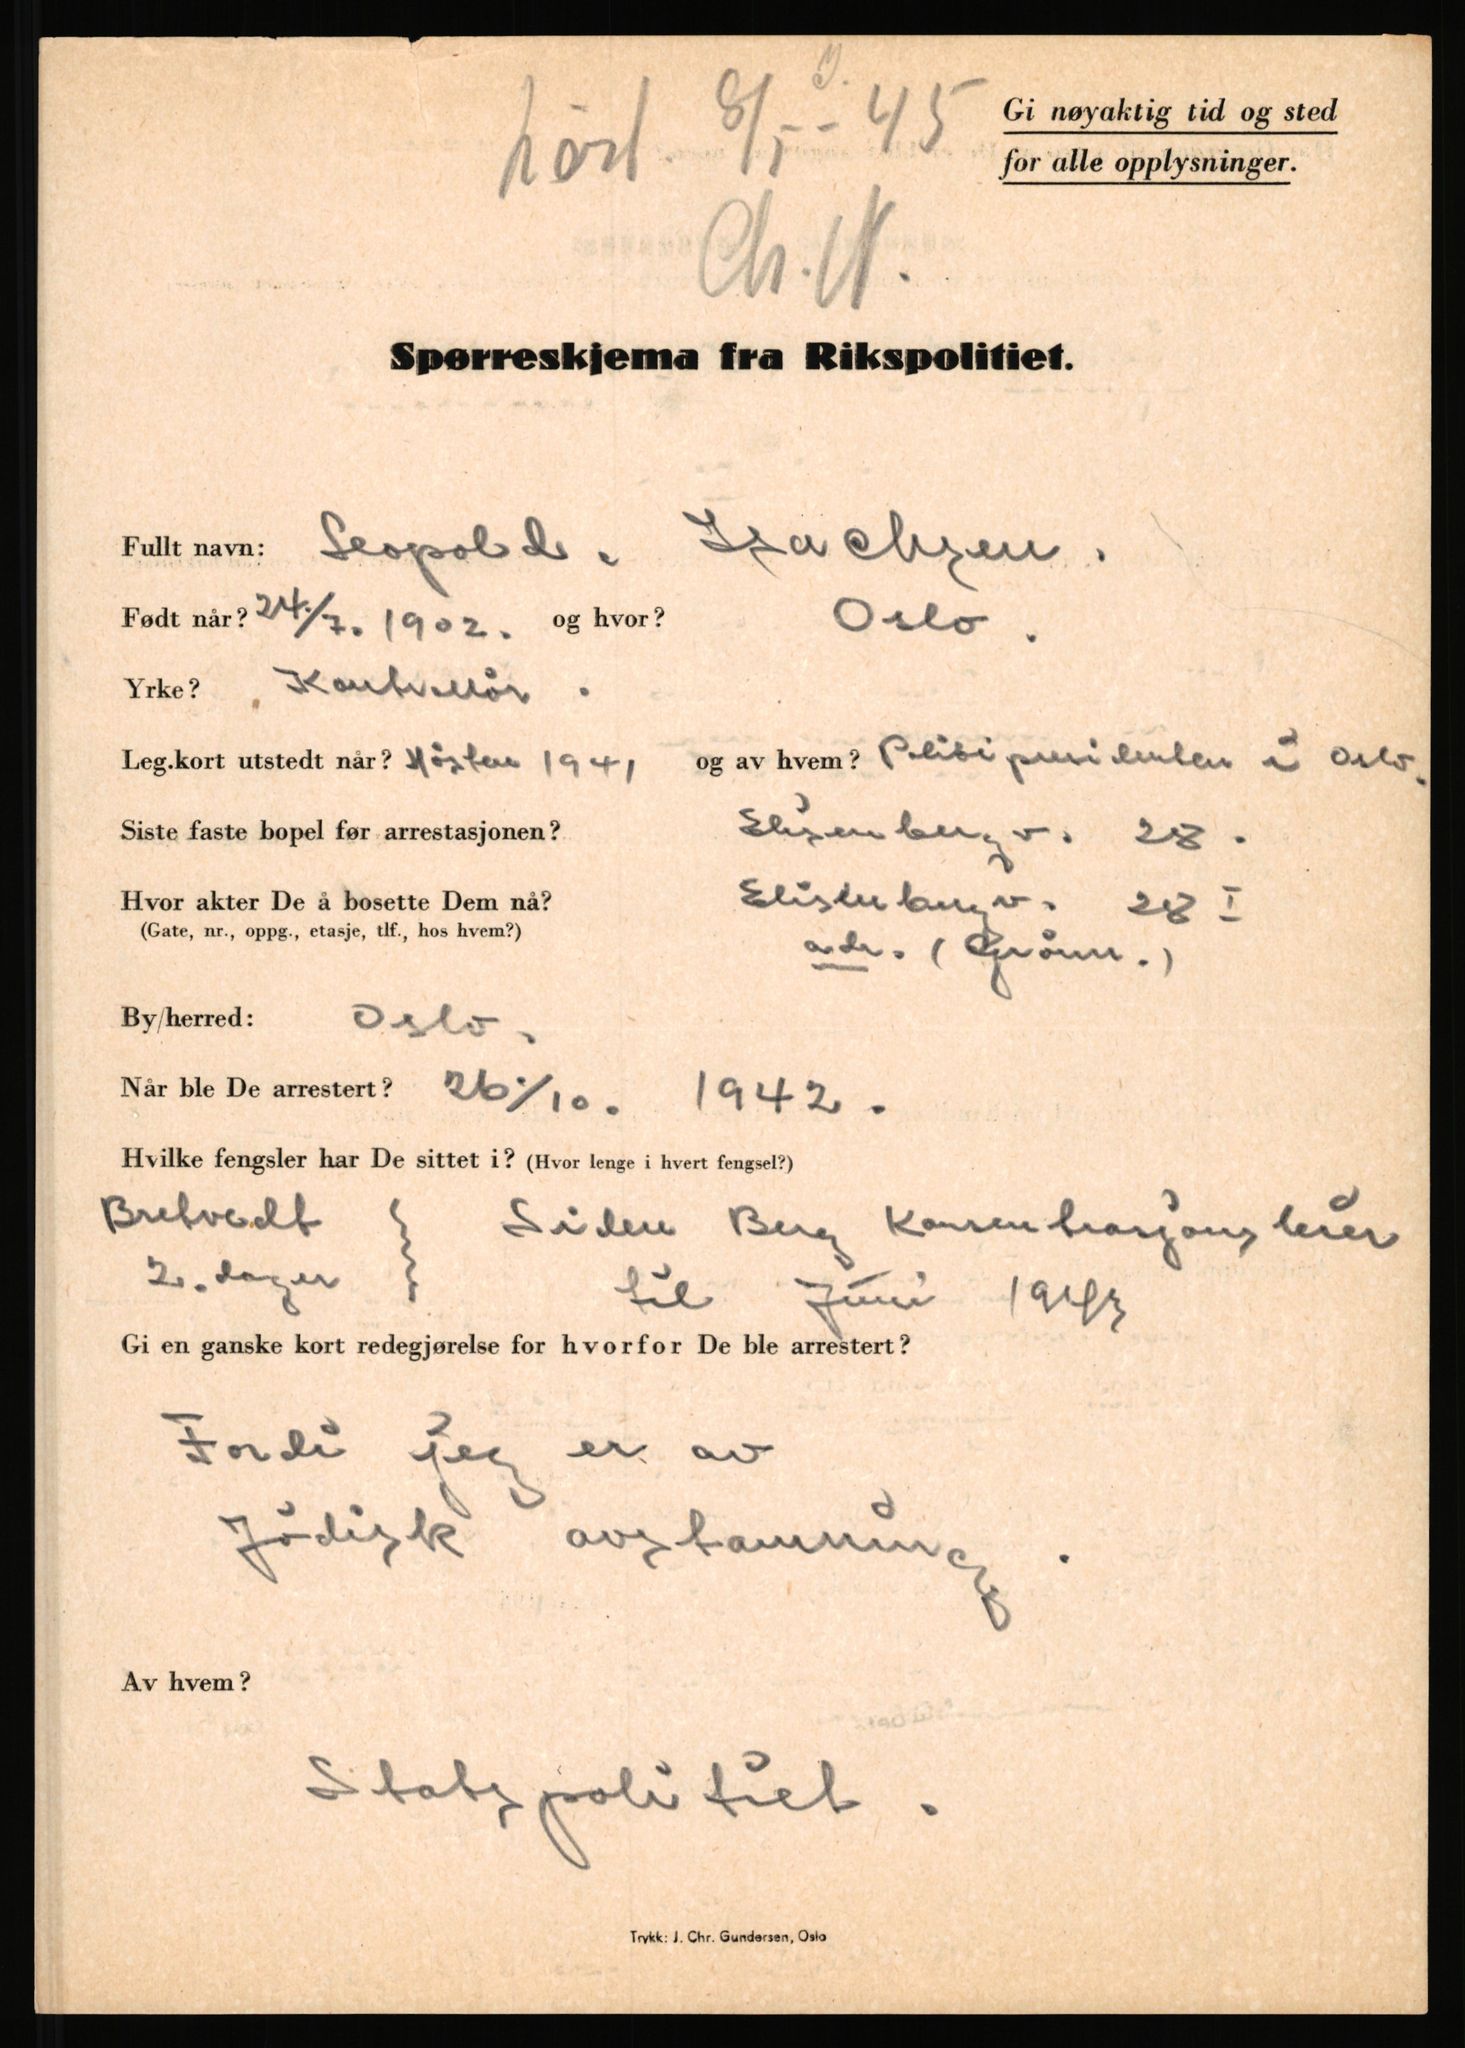 Lört 8/5-45
Ch.N.
Gi nøyaktig tid og sted
for alle opplysninger.
Spørreskjema fra Rikspolitiet.
Fullt navn: Leopold. Isachsen.
Født når? 24/7. 1902. og hvor? Oslo.
Yrke? Kontrollör.
Leg.kort utstedt når? Hösten 1941 og av hvem? Politipresidenten i Oslo.
Siste faste bopel før arrestasjonen? Elisenbergv. 28.
Hvor akter De å bosette Dem nå? Elisenbergv. 28 I
(Gate, nr., oppg., etasje, tlf., hos hvem?) adr. (Grönn.)
By/herred: Oslo.
Når ble De arrestert? 26/10. 1942.
Hvilke fengsler har De sittet i? (Hvor lenge i hvert fengsel?)
Bretvedt } Siden Berg Konsentrasjonsleir
2. dager til Juni 1943
Gi en ganske kort redegjørelse for hvorfor De ble arrestert?
Fordi jeg er av
Jödisk avstamning.
Av hvem?
Statspolitiet.
Trykk: J. Chr. Gundersen, Oslo